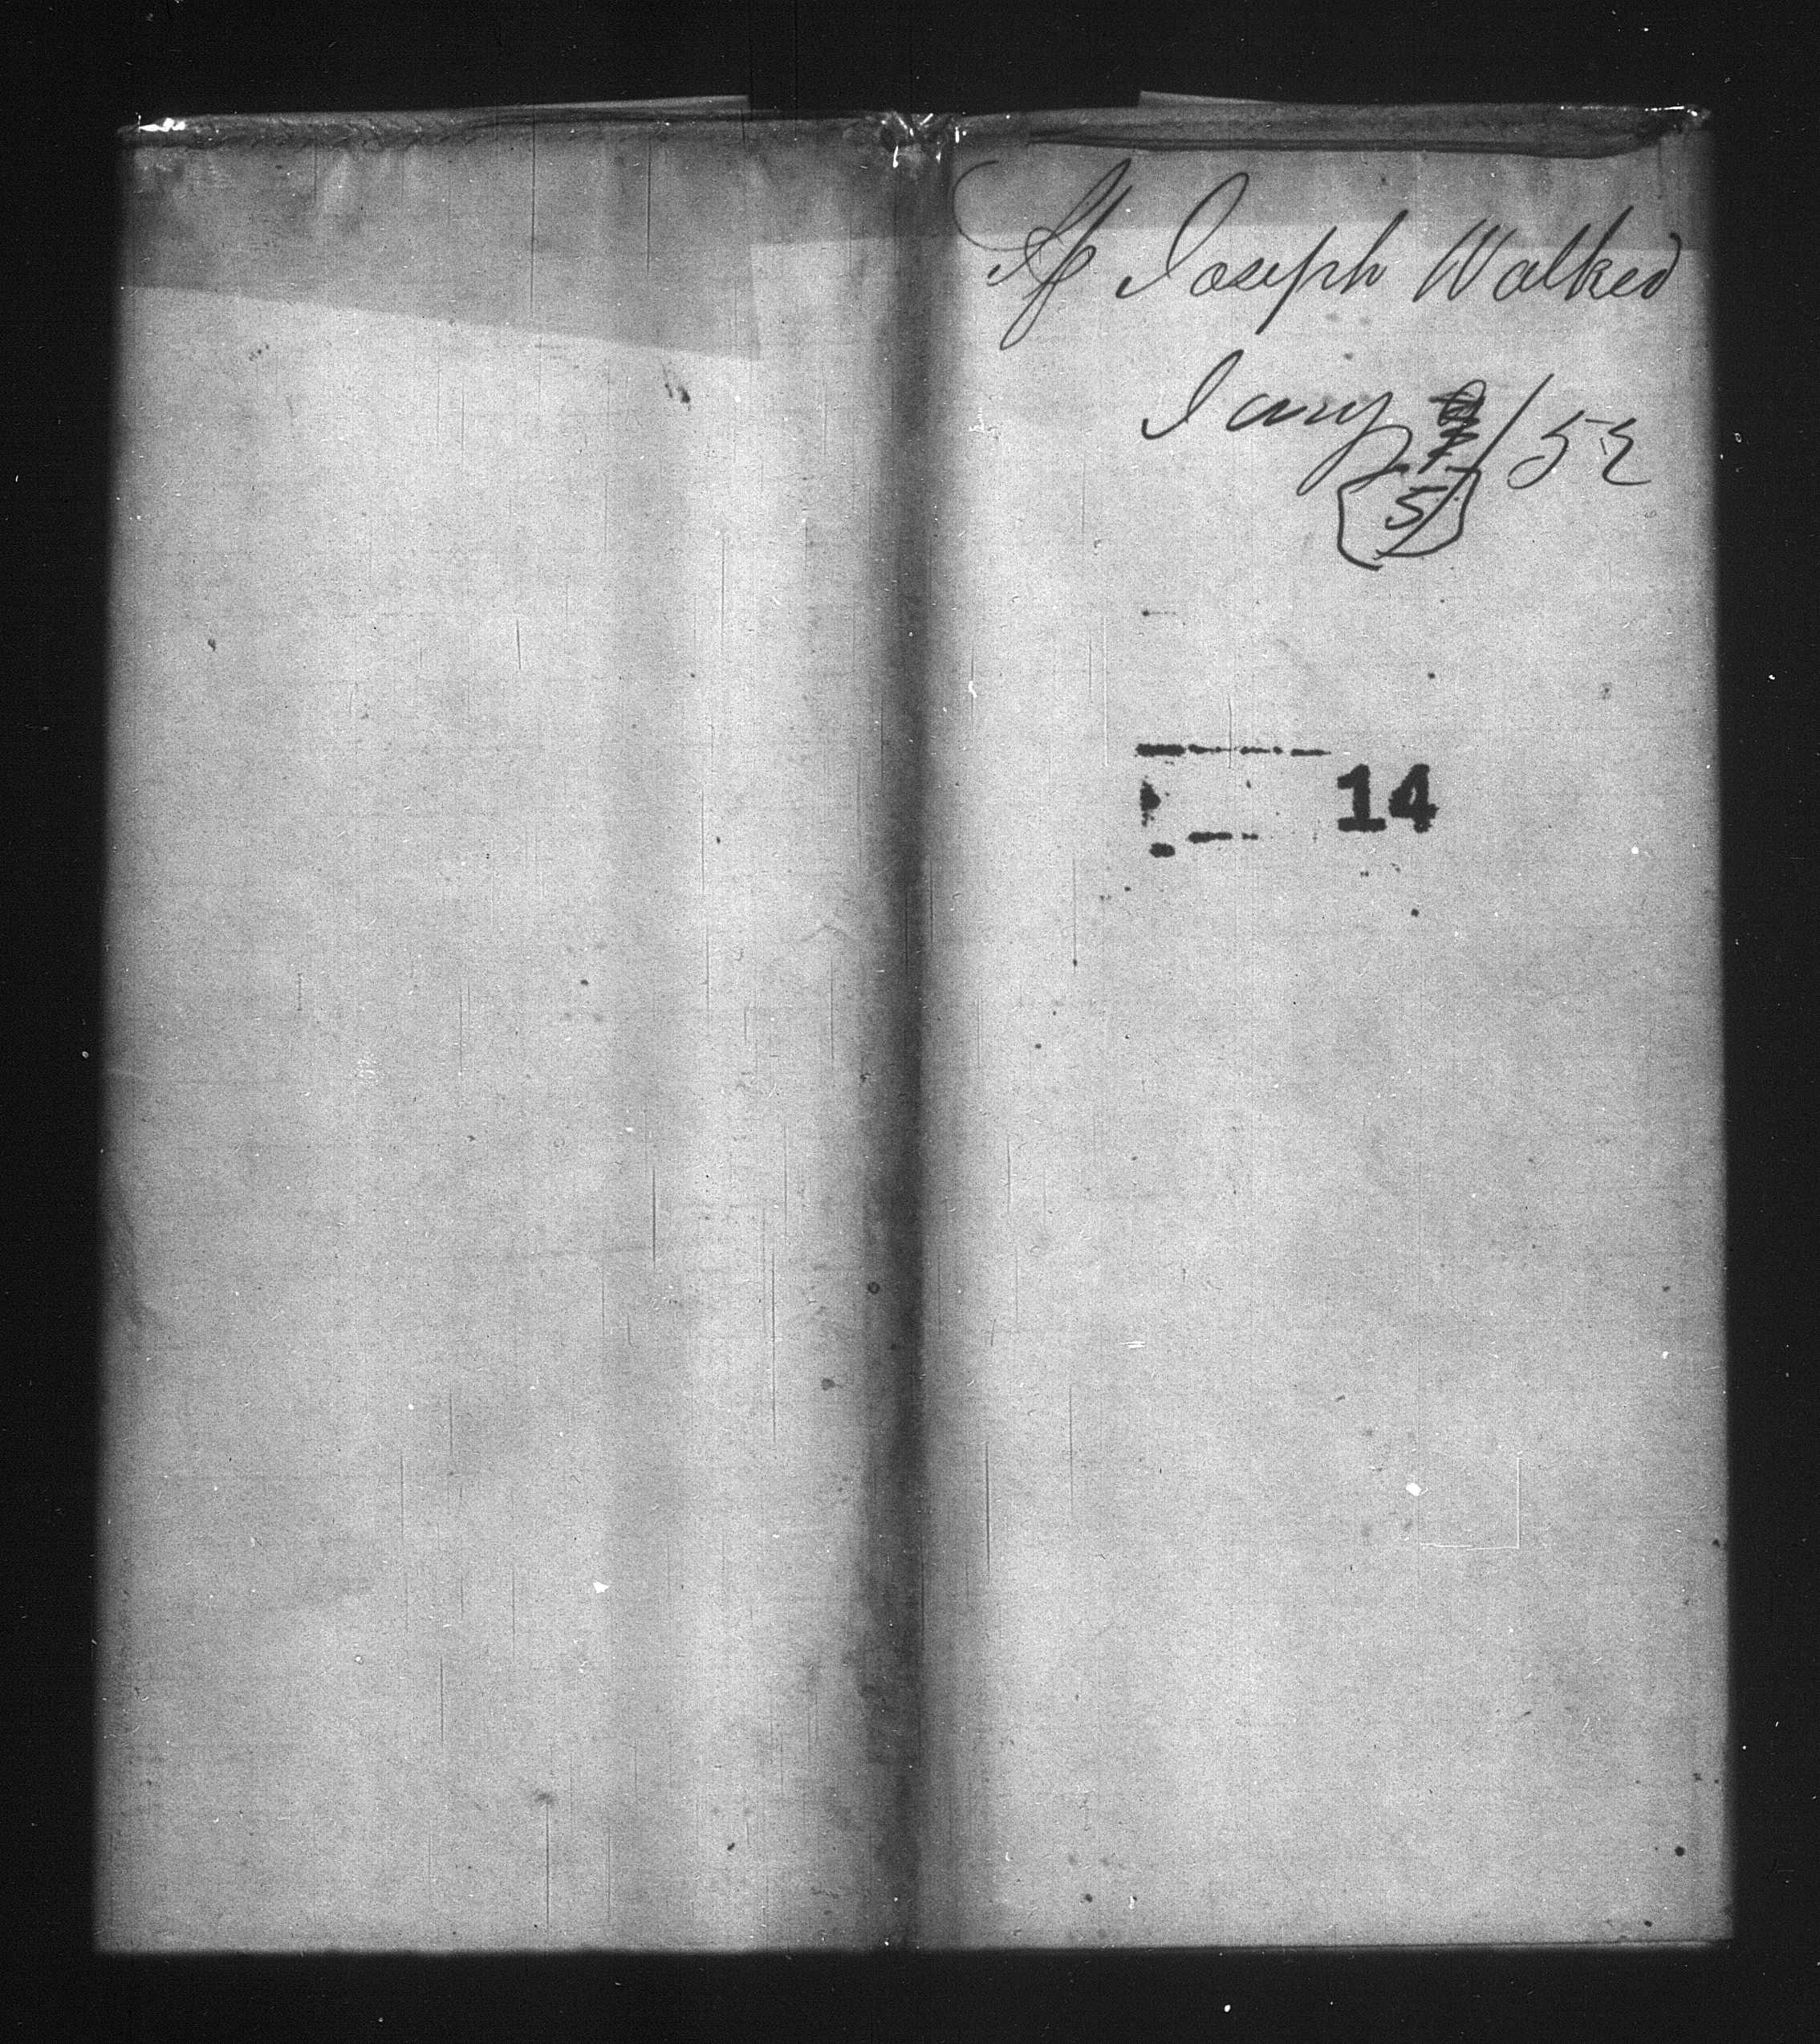 Joseph Walker
Jany /52
5
14